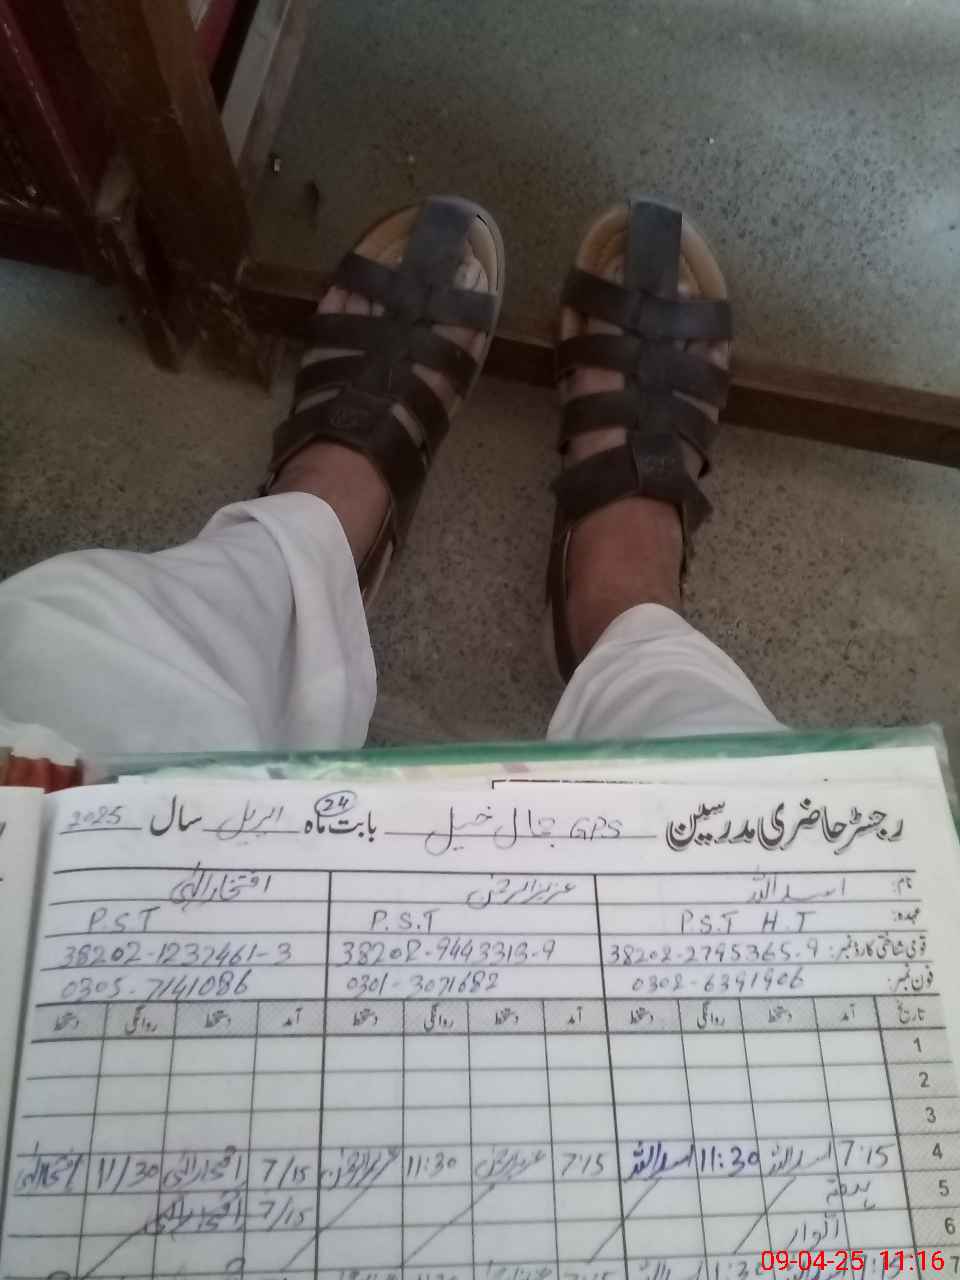 رجسٹر حاضری مدرسین GPS جال خیل بابت ماہ 24 اپریل سال 2025
نام: اسد اللہ عزیز الرحمٰن افتخار الٰہی
عہدہ: P.S.T H.T P.S.T P.S.T
قومی شناختی کارڈ نمبر: 38202-2795365-9 38202-9443313-9 38202-1237461-3
فون نمبر: 0302-6391906 0301-3071682 0305-7141086
تاریخ آمد دستخط روانگی دستخط آمد دستخط روانگی دستخط آمد دستخط روانگی دستخط
1
2
3
4 7:15 اسد اللہ 11:30 اسد اللہ 7:15 عزیز الرحمٰن 11:30 عزیز الرحمٰن 7/15 افتخار الٰہی 11/30 افتخار الٰہی
5 7/15 افتخار الٰہی
6 اتوار
7
09-04-25 11:16